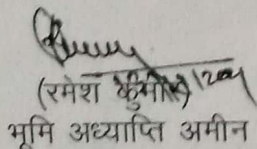 (रमेश कुमार)
भूमि अध्याप्ति अमीन